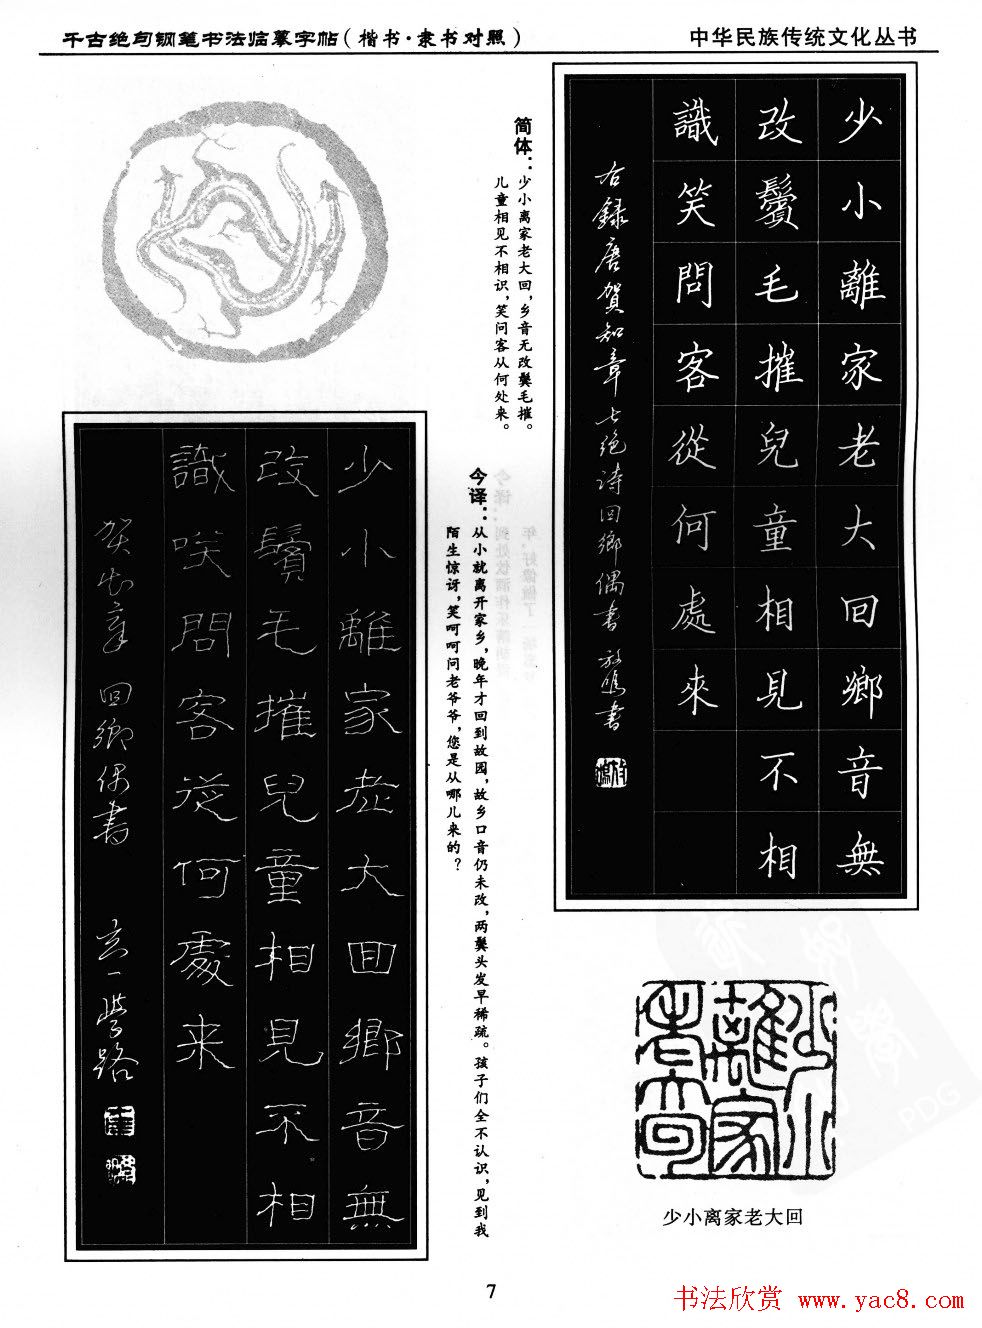 千古绝句钢笔书法临摹字帖（楷书·隶书对照）
中华民族传统文化丛书
少小離家老大回鄉音無
改鬢毛摧兒童相見不相
識笑問客從何處來
右録唐賀知章七绝诗回鄉偶書
简体：少小离家老大回，乡音无改鬓毛摧。
儿童相见不相识，笑问客从何处来。
今译：从小就离开家乡，晚年才回到故园，故乡口音仍未改，两鬓头发早稀疏。孩子们全不认识，见到我
陌生惊讶，笑呵呵问老爷爷，您是从哪儿来的？
少小離家老大回鄉音無
改鬢毛摧兒童相見不相
識咲問客從何處来
贺知章 回鄉偶書
少小離家老大回
少小离家老大回
7
书法欣赏 www.yac8.com